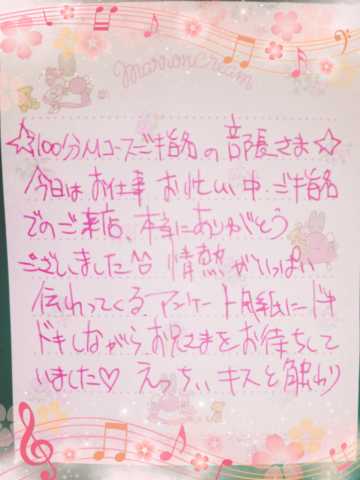 Marroncream
☆100分Mコースご指名の部長さま☆
今日はお仕事お忙しい中、ご指名
でのご来店、本当にありがとう
ございました 情熱がいっぱい
伝わってくるアンケート用紙にドキ
ドキしながらお兄さまをお待ちして
いました♡ えっちぃキスと触わり